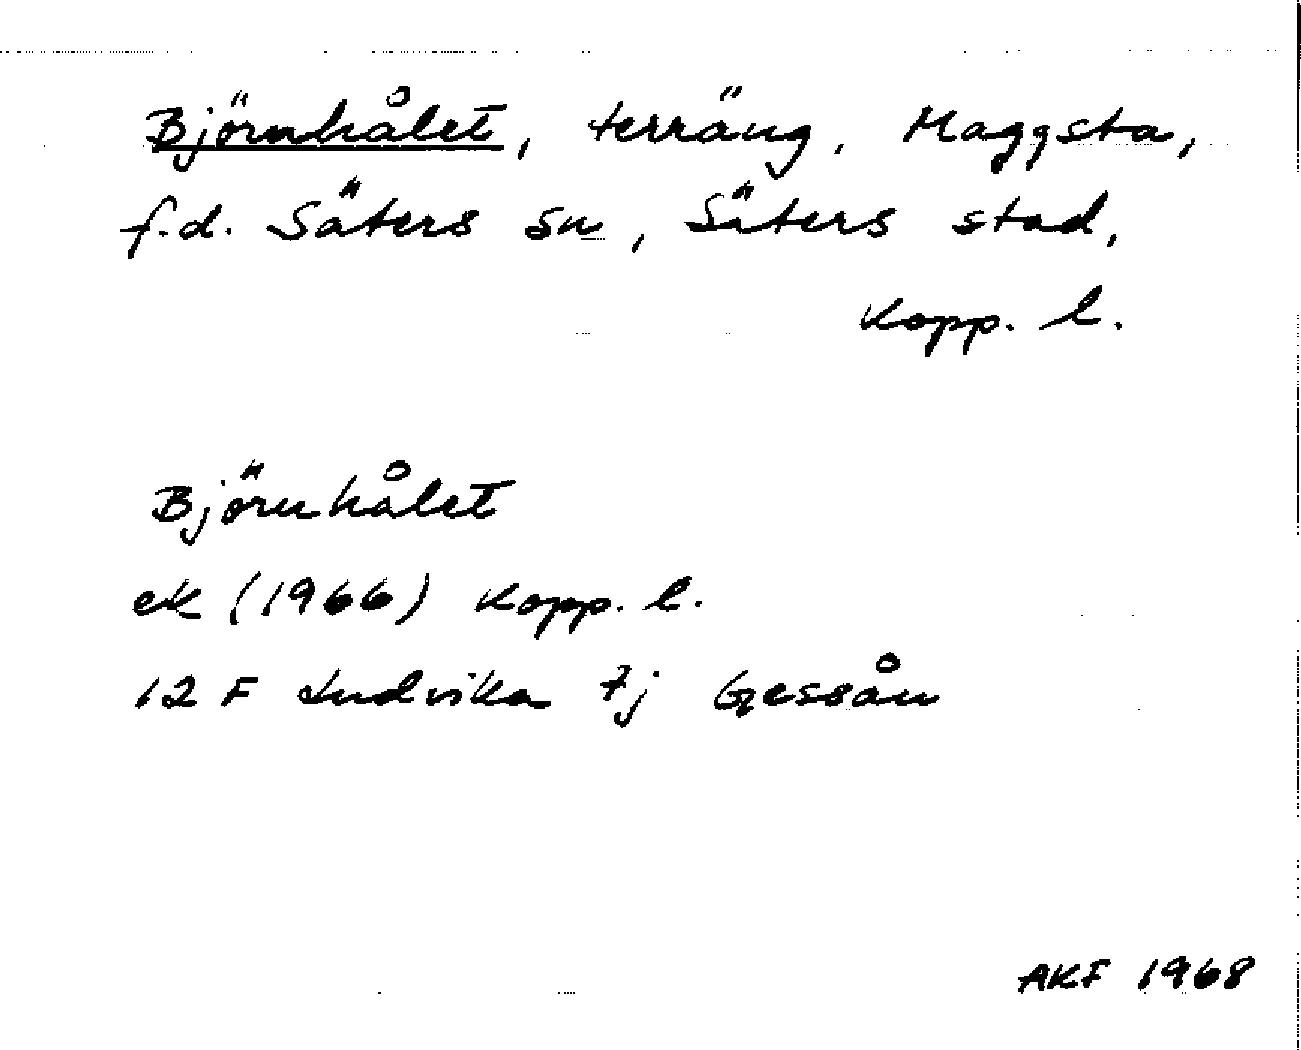 Björnhålet, terräng, Maggsta,
f.d. Säters sn, Säters stad,
Kopp. l.
Björnhålet
ek (1966) Kopp. l.
12 F Ludvika 7j Gessån
AKF 1968